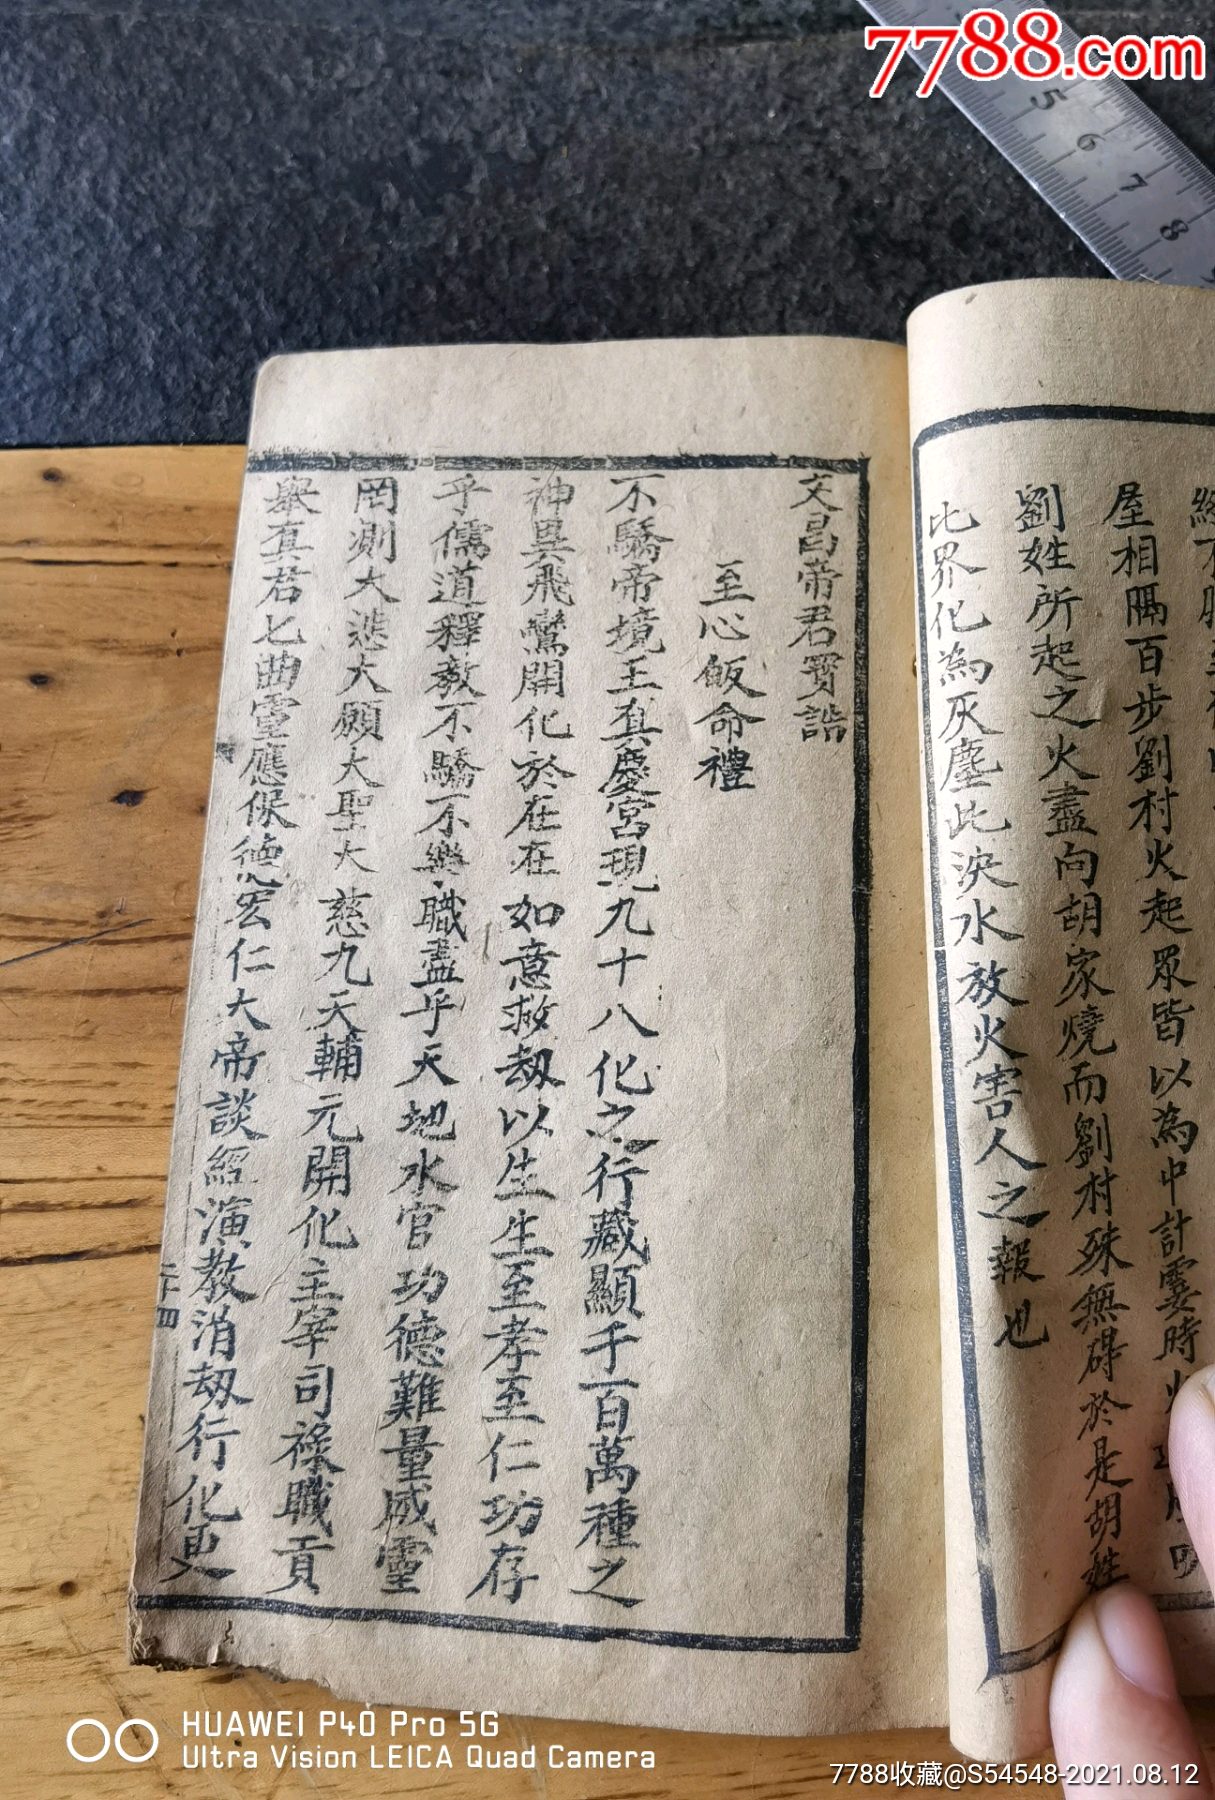 7788.com
5
6
7
8
屋相隔百步劉村火起眾皆以為中計霎時火
劉姓所起之火盡向胡家燒而劉村殊無碍於是胡姓
比界化為灰塵此決水放火害人之報也
文昌帝君寳誥
至心皈命禮
不驕帝境玉真慶宮現九十八化之行藏顯千百萬種之
神異飛鸞開化於在在如意救刼以生生至孝至仁功存
乎儒道釋教不驕不樂職盡乎天地水官功德難量威靈
罔測大悲大願大聖大慈九天輔元開化主宰司祿職貢
舉真君七曲靈應保德宏仁大帝談經演教消刼行化更
二十四
HUAWEI P40 Pro 5G
Ultra Vision LEICA Quad Camera
7788收藏@S54548-2021.08.12